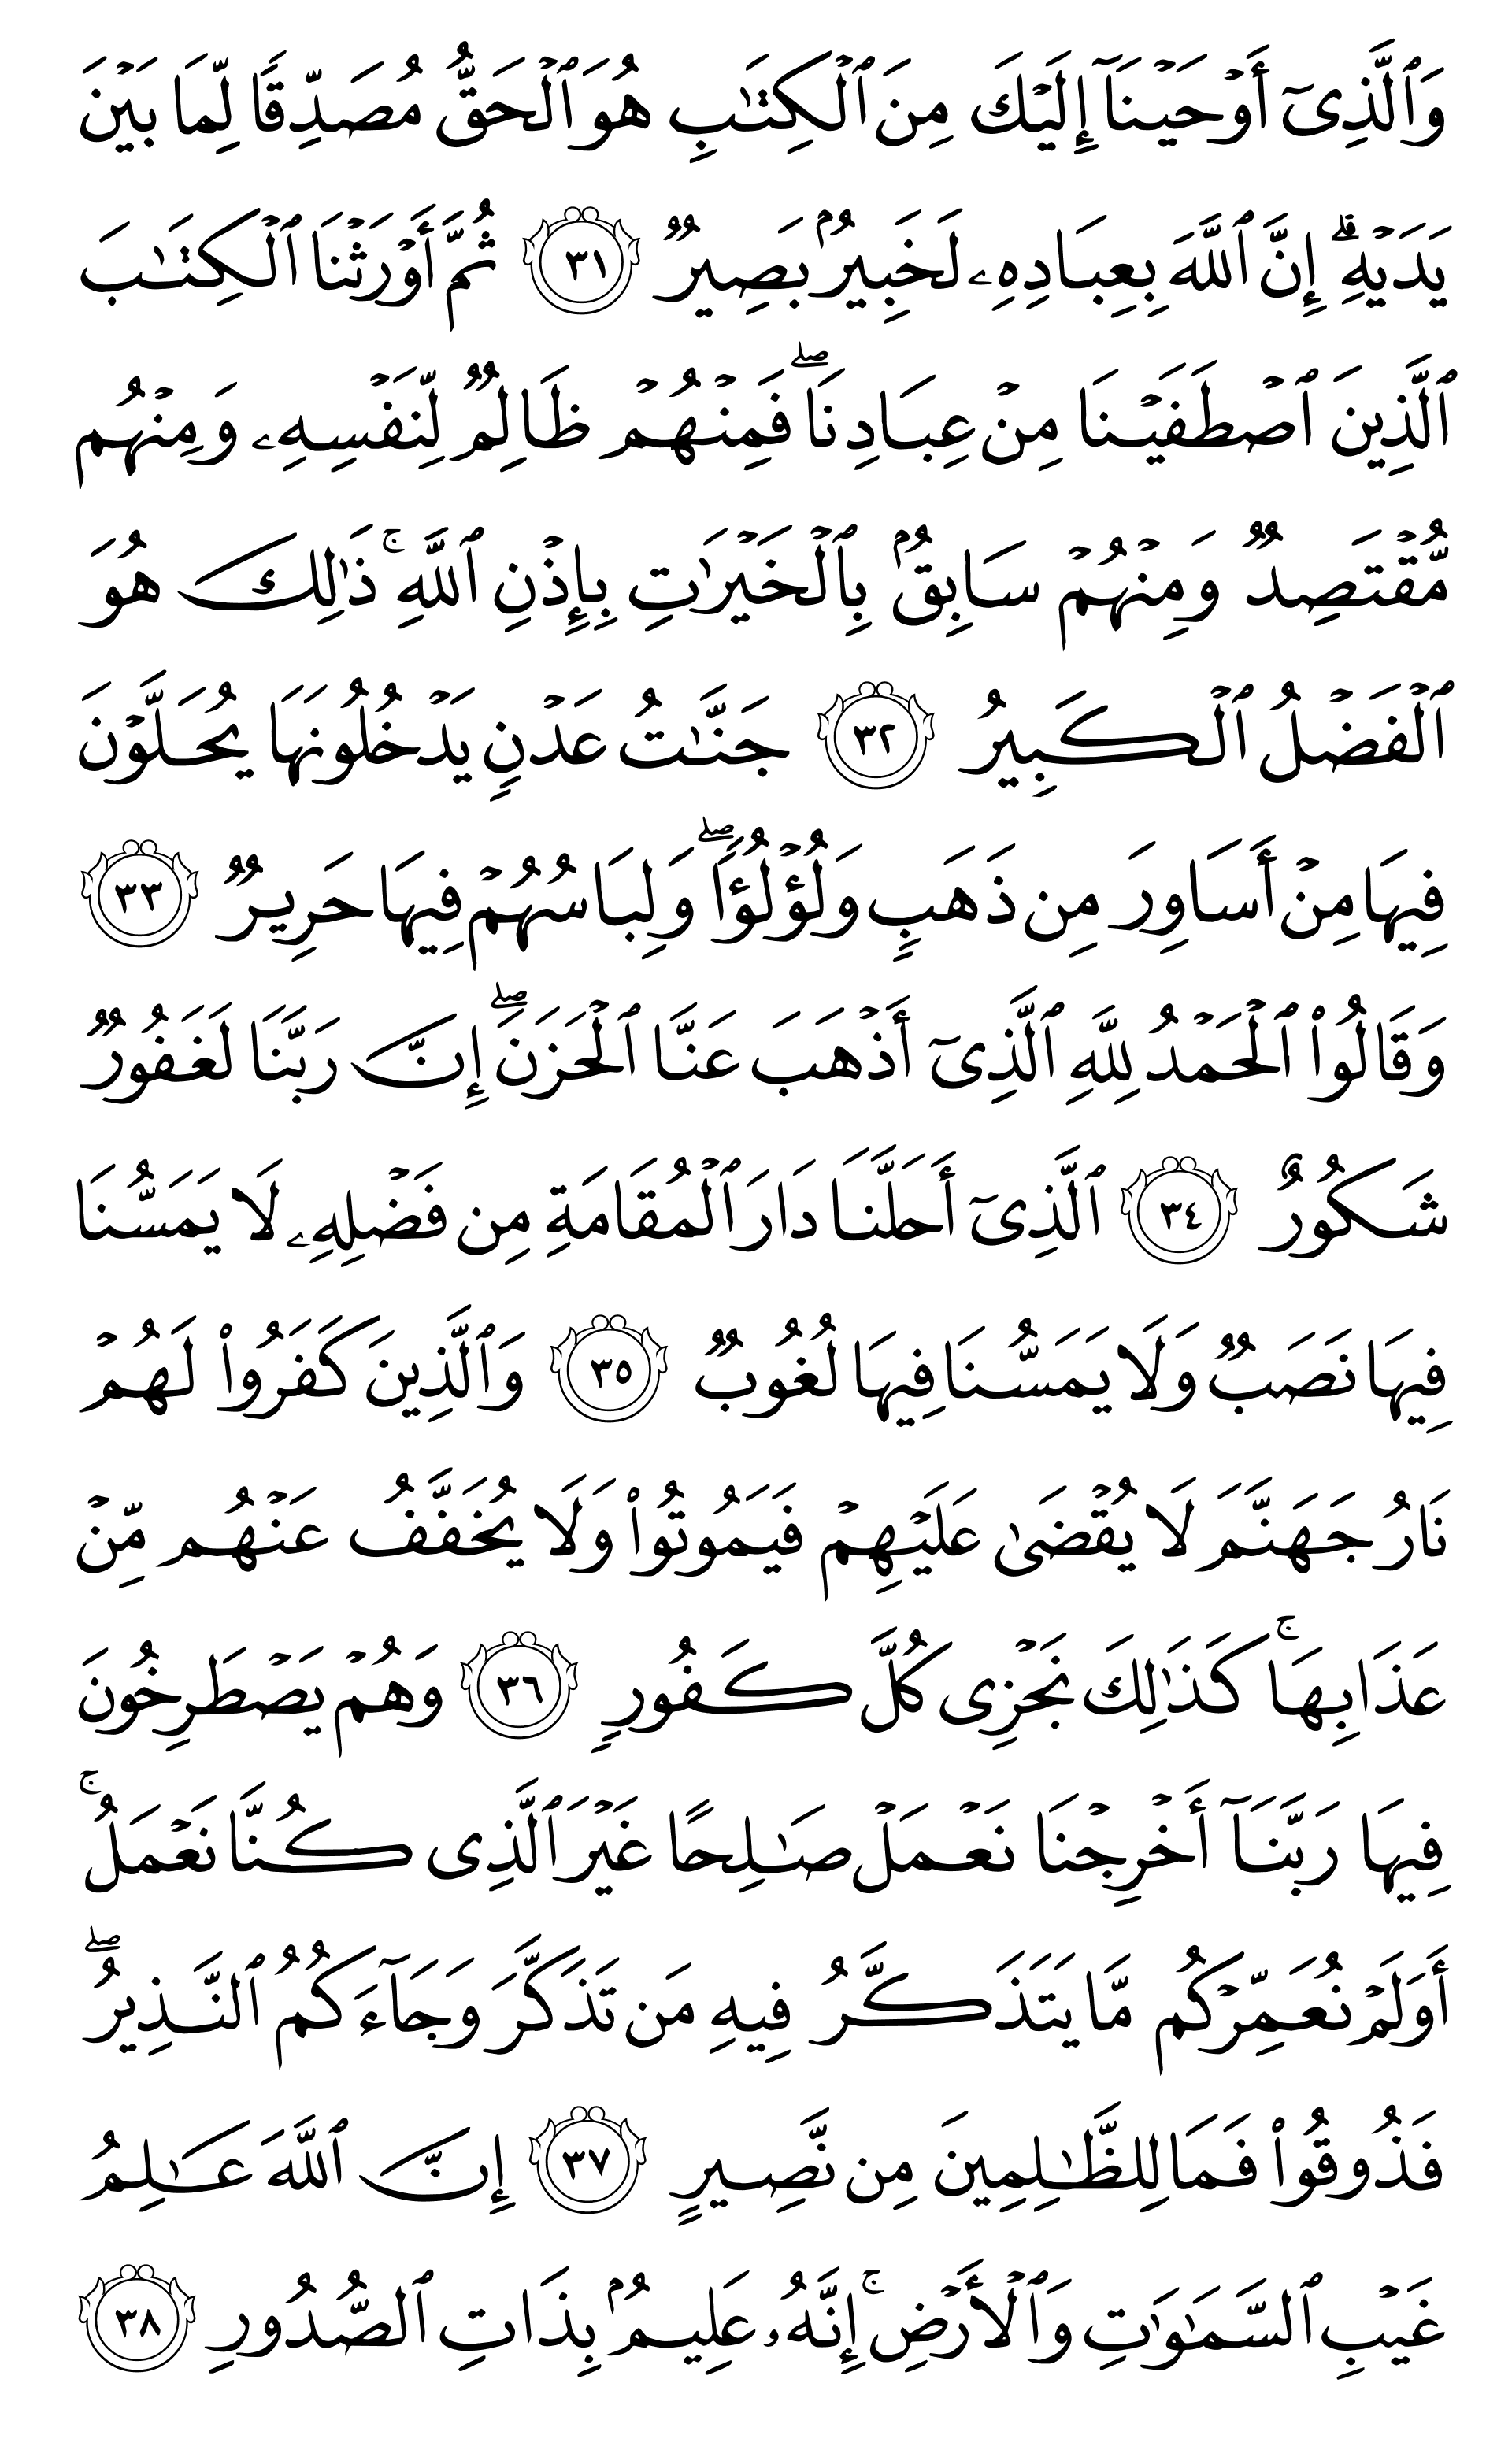 وَٱلَّذِىٓ أَوۡحَيۡنَآ إِلَيۡكَ مِنَ ٱلۡكِتَٰبِ هُوَ ٱلۡحَقُّ مُصَدِّقًا لِّمَا بَيۡنَ
يَدَيۡهِۗ إِنَّ ٱللَّهَ بِعِبَادِهِۦ لَخَبِيرُۢ بَصِيرٌ ٣١ ثُمَّ أَوۡرَثۡنَا ٱلۡكِتَٰبَ
ٱلَّذِينَ ٱصۡطَفَيۡنَا مِنۡ عِبَادِنَاۖ فَمِنۡهُمۡ ظَالِمٌ لِّنَفۡسِهِۦ وَمِنۡهُم
مُّقۡتَصِدٌ وَمِنۡهُمۡ سَابِقُۢ بِٱلۡخَيۡرَٰتِ بِإِذۡنِ ٱللَّهِۚ ذَٰلِكَ هُوَ
ٱلۡفَضۡلُ ٱلۡكَبِيرُ ٣٢ جَنَّٰتُ عَدۡنٍ يَدۡخُلُونَهَا يُحَلَّوۡنَ
فِيهَا مِنۡ أَسَاوِرَ مِن ذَهَبٍ وَلُؤۡلُؤًاۖ وَلِبَاسُهُمۡ فِيهَا حَرِيرٌ ٣٣
وَقَالُوا۟ ٱلۡحَمۡدُ لِلَّهِ ٱلَّذِىٓ أَذۡهَبَ عَنَّا ٱلۡحَزَنَۖ إِنَّ رَبَّنَا لَغَفُورٌ
شَكُورٌ ٣٤ ٱلَّذِىٓ أَحَلَّنَا دَارَ ٱلۡمُقَامَةِ مِن فَضۡلِهِۦ لَا يَمَسُّنَا
فِيهَا نَصَبٌ وَلَا يَمَسُّنَا فِيهَا لُغُوبٌ ٣٥ وَٱلَّذِينَ كَفَرُوا۟ لَهُمۡ
نَارُ جَهَنَّمَ لَا يُقۡضَىٰ عَلَيۡهِمۡ فَيَمُوتُوا۟ وَلَا يُخَفَّفُ عَنۡهُم مِّنۡ
عَذَابِهَاۚ كَذَٰلِكَ نَجۡزِى كُلَّ كَفُورٍ ٣٦ وَهُمۡ يَصۡطَرِخُونَ
فِيهَا رَبَّنَآ أَخۡرِجۡنَا نَعۡمَلۡ صَٰلِحًا غَيۡرَ ٱلَّذِى كُنَّا نَعۡمَلُۚ
أَوَلَمۡ نُعَمِّرۡكُم مَّا يَتَذَكَّرُ فِيهِ مَن تَذَكَّرَ وَجَآءَكُمُ ٱلنَّذِيرُۖ
فَذُوقُوا۟ فَمَا لِلظَّٰلِمِينَ مِن نَّصِيرٍ ٣٧ إِنَّ ٱللَّهَ عَٰلِمُ
غَيۡبِ ٱلسَّمَٰوَٰتِ وَٱلۡأَرۡضِۚ إِنَّهُۥ عَلِيمُۢ بِذَاتِ ٱلصُّدُورِ ٣٨